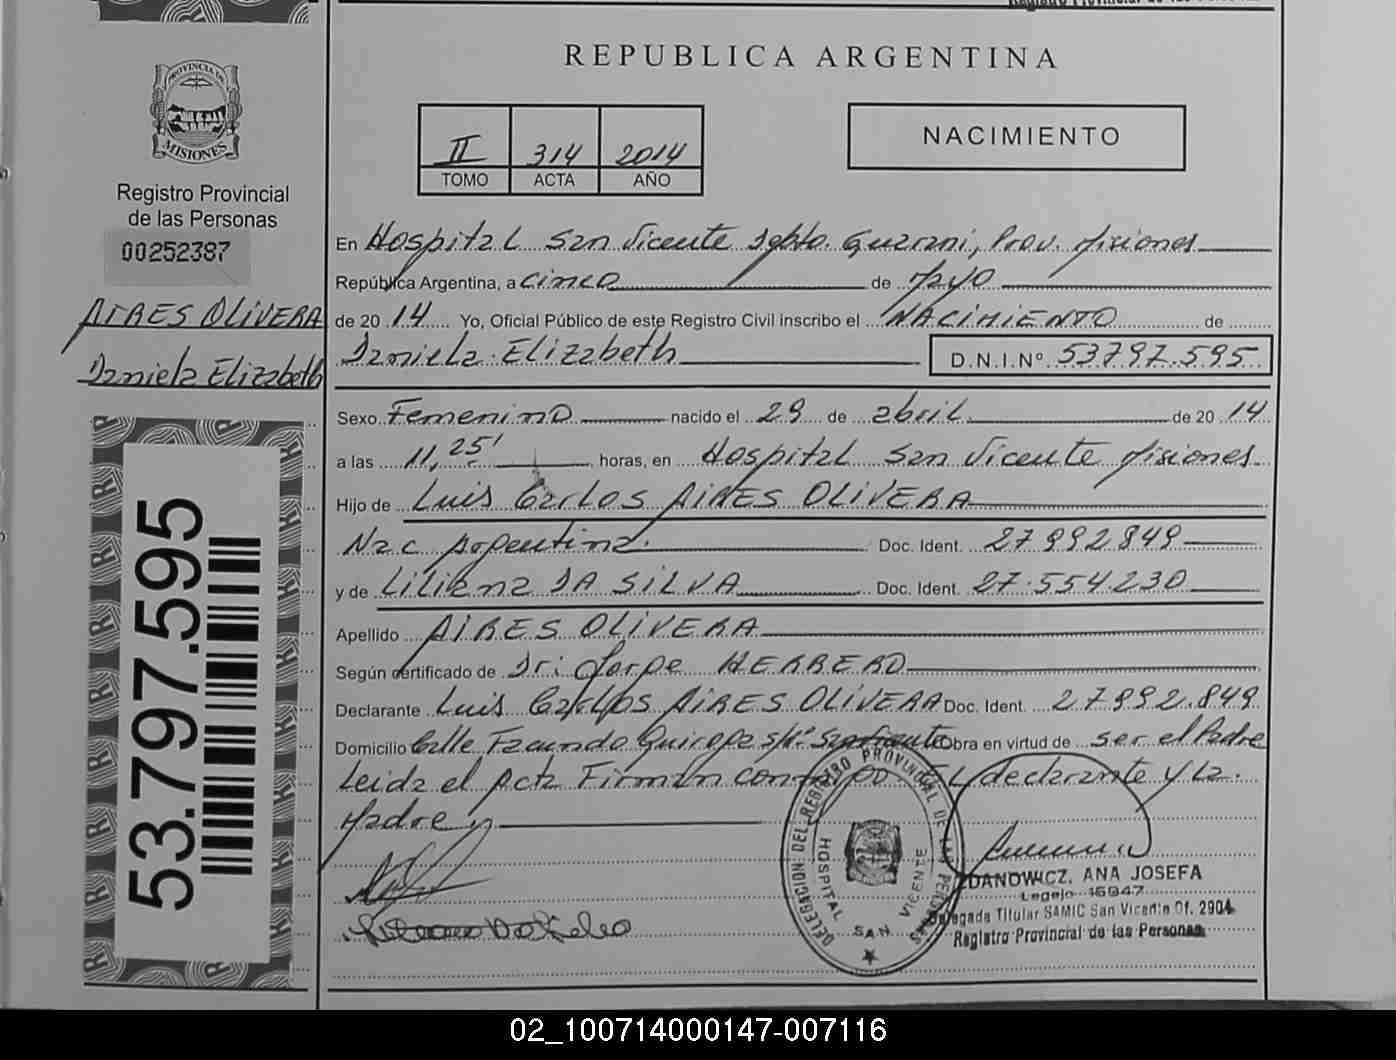 REPUBLICA ARGENTINA
PROVINCIA DE
MISIONES
Registro Provincial
de las Personas
00252387
AIRES OLIVERA
Daniela Elizabeth
53.797.595
II 314 2014
TOMO ACTA AÑO
NACIMIENTO
En Hospital San Vicente Dpto. Guarani, Prov. Misiones
República Argentina, a cinco de Mayo
de 20 14 Yo, Oficial Público de este Registro Civil inscribo el NACIMIENTO de
Daniela Elizabeth D.N.I.Nº 53797.595
Sexo Femenino nacido el 29 de abril de 20 14
a las 11,25' horas, en Hospital San Vicente Misiones
Hijo de Luis Carlos AIRES OLIVERA
Nac Argentina. Doc. Ident. 27992849
y de Liliana DA SILVA Doc. Ident. 27.554.230
Apellido AIRES OLIVERA
Según certificado de Dr: Jorge HERRERO
Declarante Luis Carlos AIRES OLIVERA Doc. Ident. 27992.849
Domicilio Calle Facundo Quiroga s/nº San Vicente Obra en virtud de ser el Padre
Leida el Acta Firman conmigo EL declarante y La
Madre
DELEGACION DEL REGISTRO PROVINCIAL DE LAS PERSONAS
HOSPITAL SAN VICENTE
ZDANOWICZ, ANA JOSEFA
Legajo 16947
Delegada Titular SAMIC San Vicente Of. 2904
Registro Provincial de las Personas
02_100714000147-007116